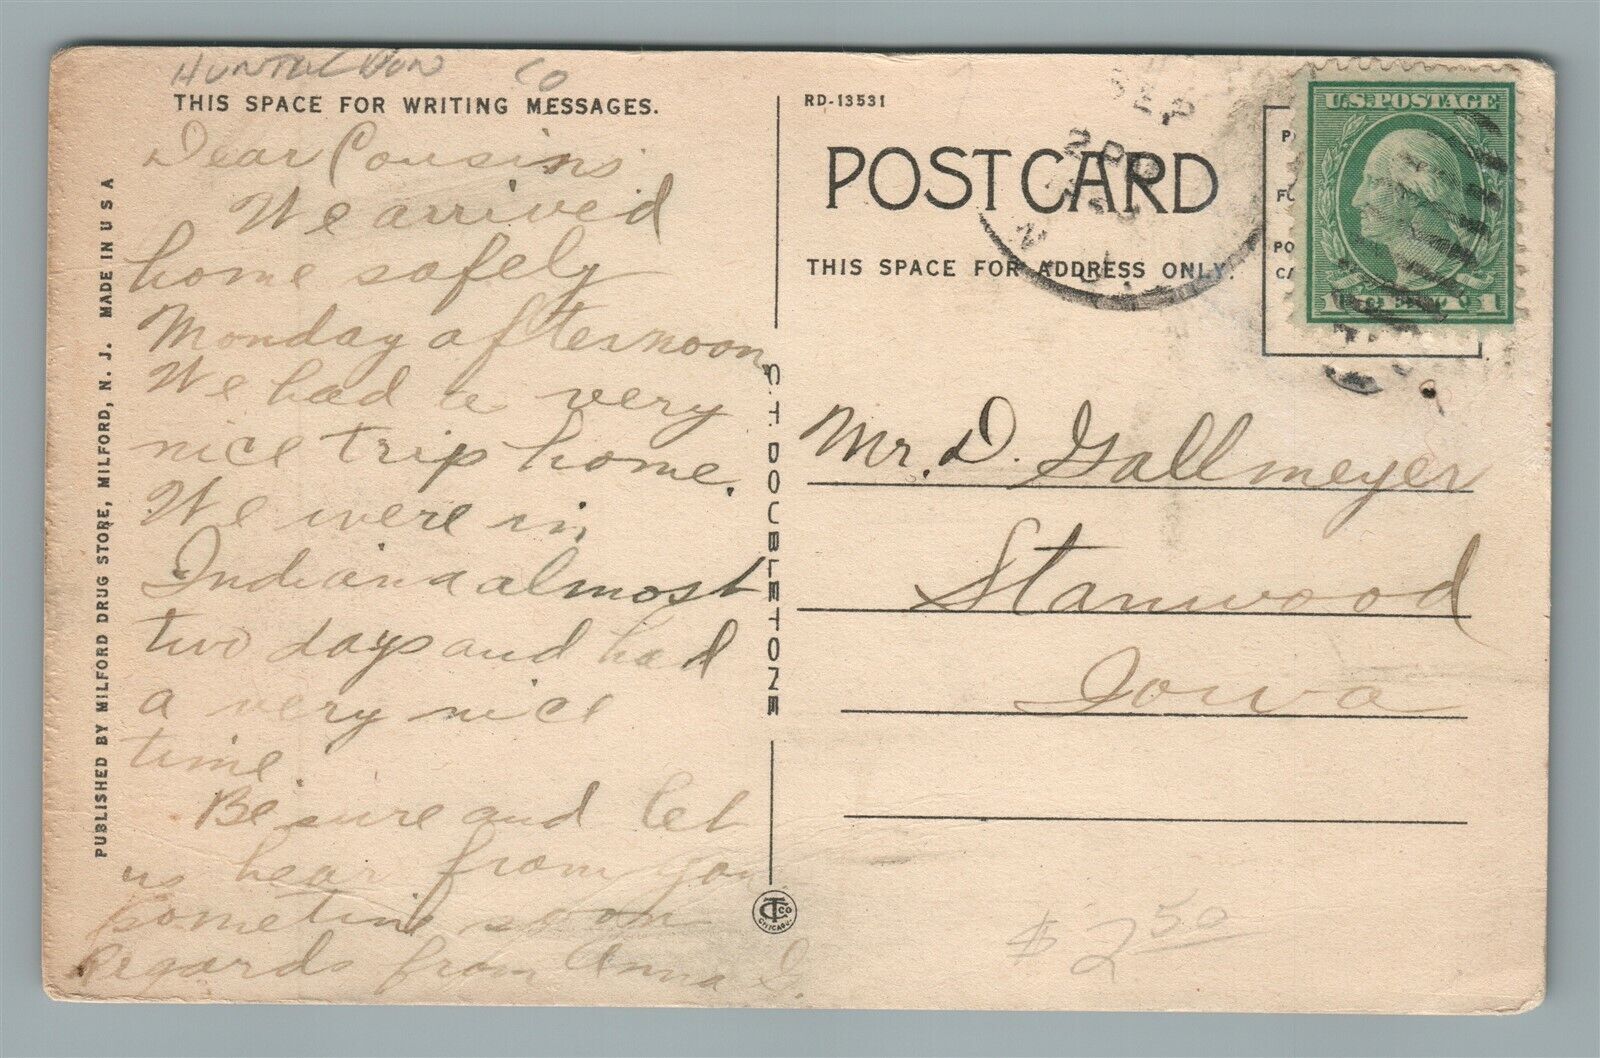 HUNTERDON CO
THIS SPACE FOR WRITING MESSAGES.
Dear Cousins
We arrived
home safely
Monday afternoon,
We had a very
nice trip home.
We were in
Indiana almost
two days and had
a very nice
time.
Be sure and let
us hear from you
sometime soon
Regards from Anna G.
PUBLISHED BY MILFORD DRUG STORE, MILFORD, N. J. MADE IN U S A
C. T. DOUBLETONE
CTCO
CHICAGO.
RD-13531
POST CARD
THIS SPACE FOR ADDRESS ONLY.
SEP
20
N.J.
U.S. POSTAGE
1 1
Mr. D. Gallmeyer
Stanwood
Iowa
$ 2 50